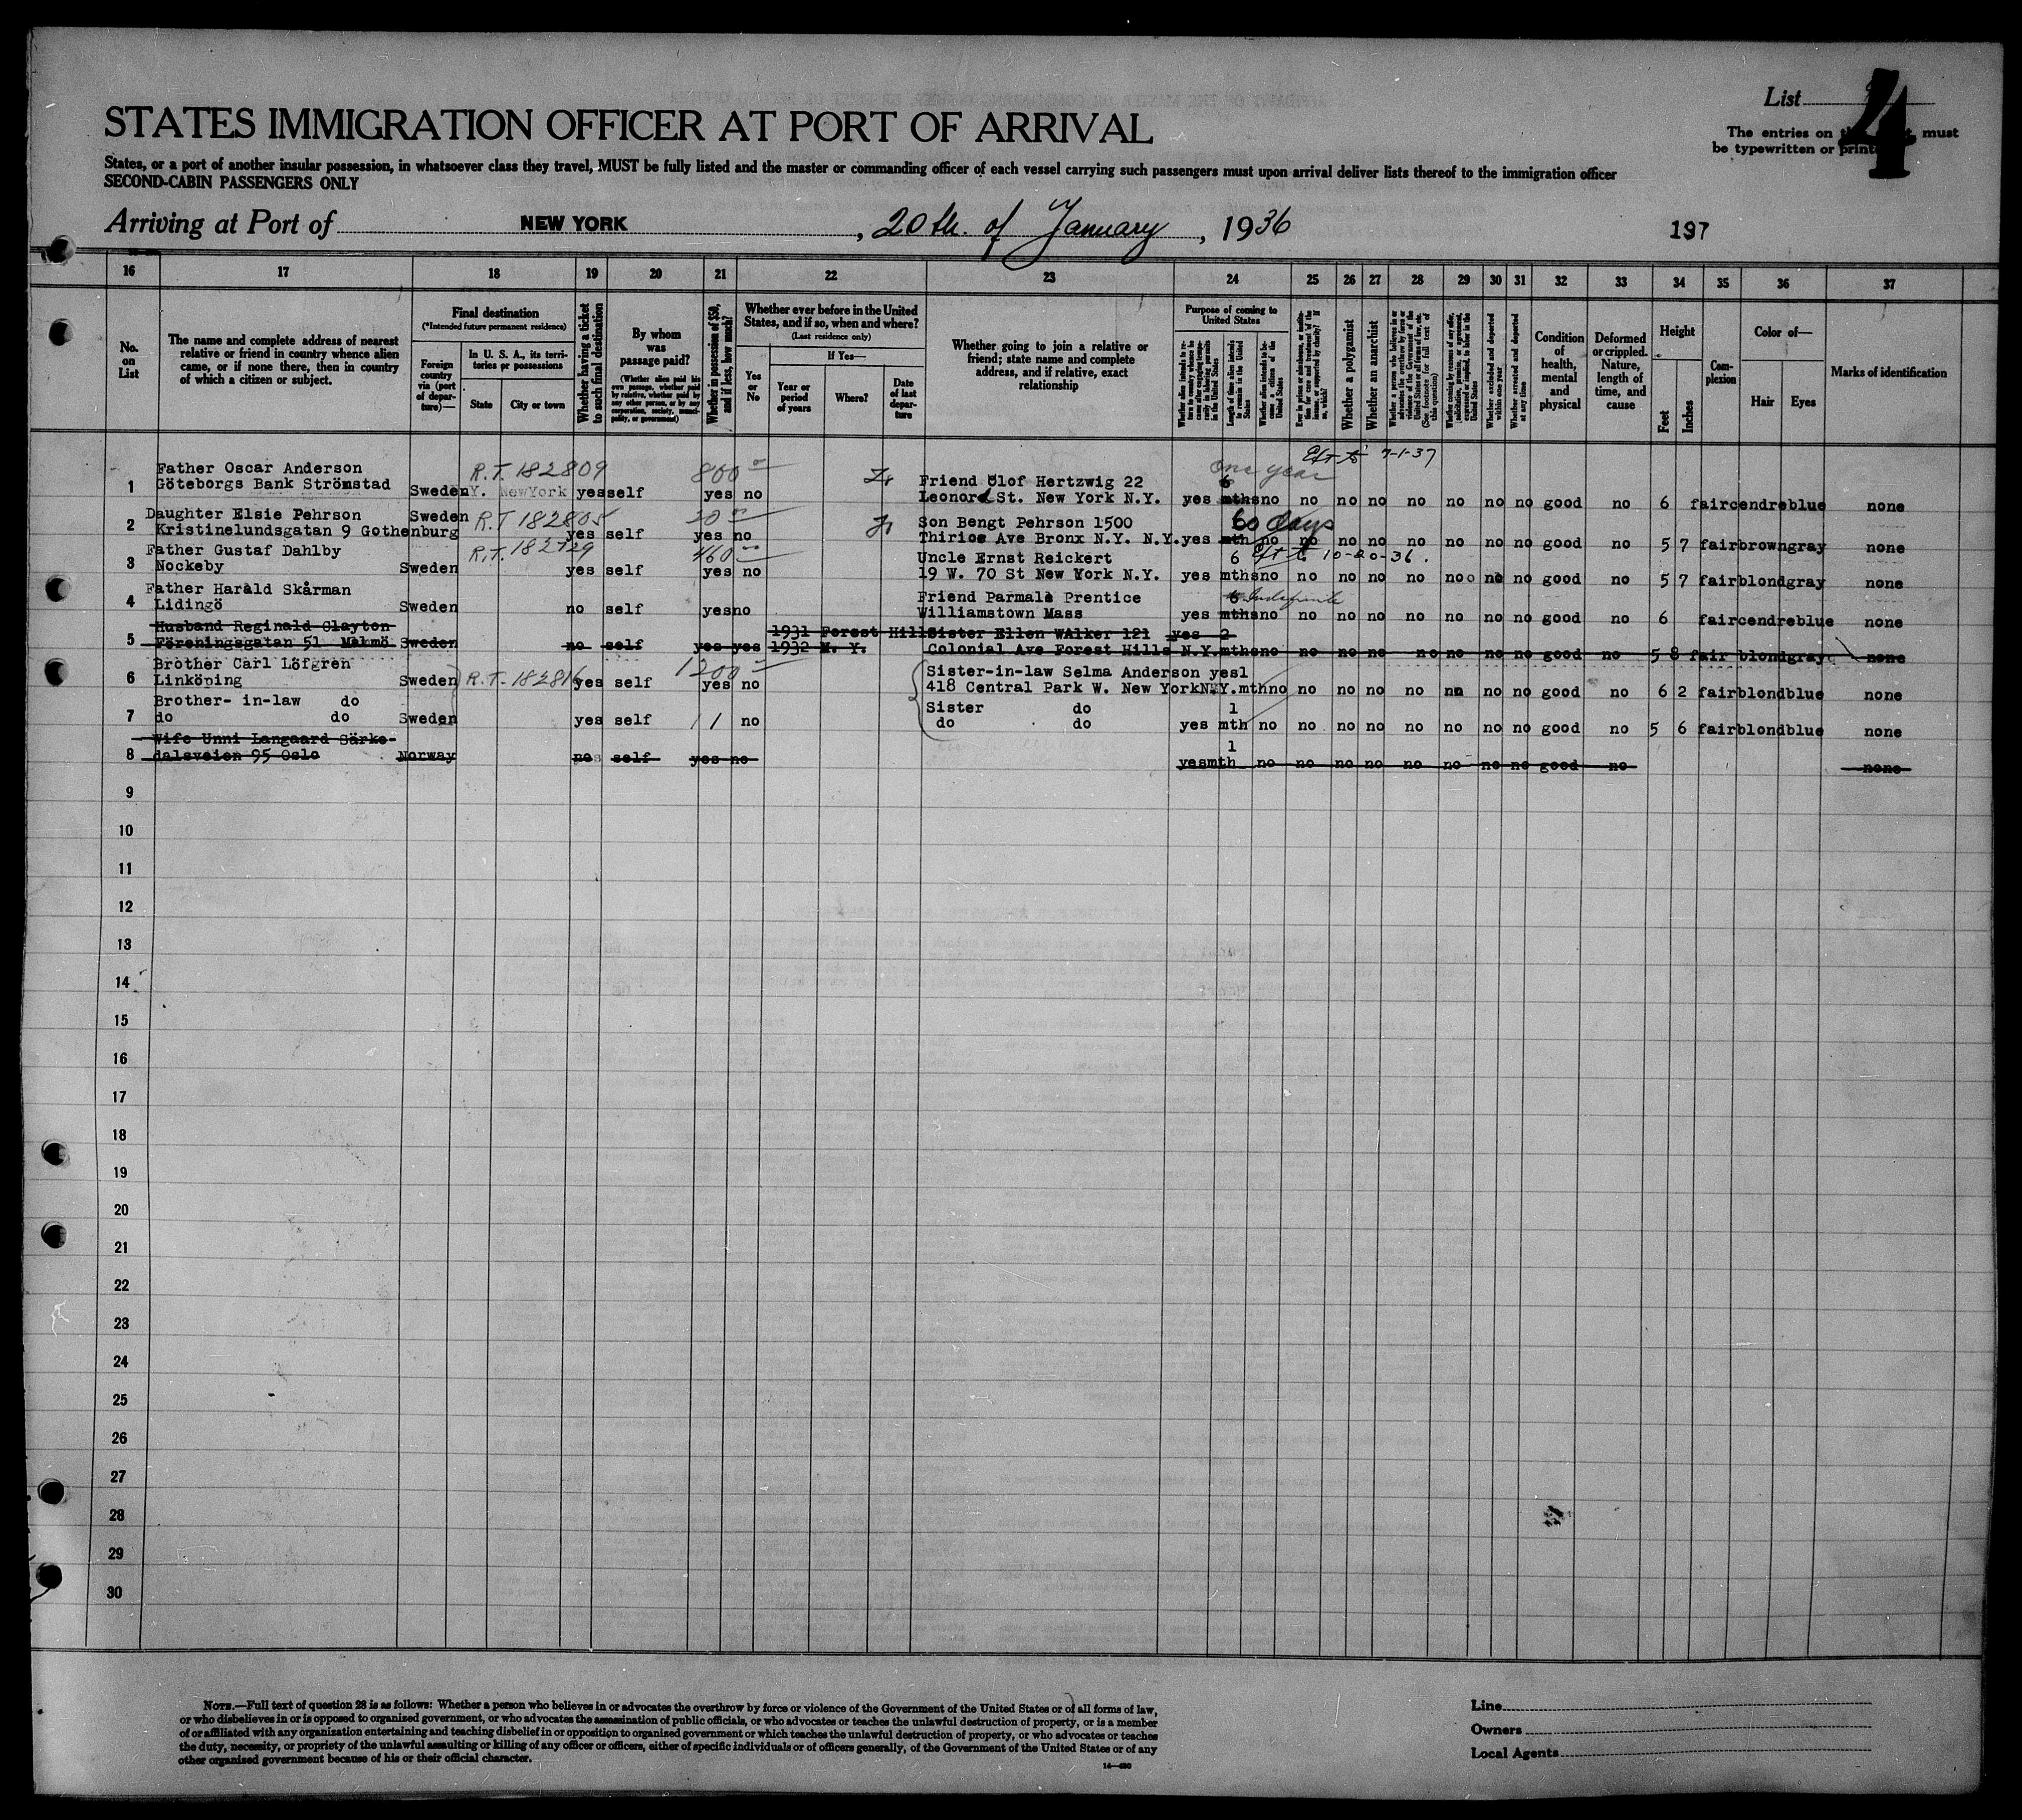 List 4
STATES IMMIGRATION OFFICER AT PORT OF ARRIVAL
The entries on must
be typewritten or
States, or a port of another insular possession, in whatsoever class they travel, MUST be fully listed and the master or commanding officer of each vessel carrying such passengers must upon arrival deliver lists thereof to the immigration officer
SECOND-CABIN PASSENGERS ONLY
Arriving at Port of NEW YORK, 20th. of January, 1936
197
16 17 18 19 20 21 22 23 24 25 26 27 28 29 30 31 32 33 34 35 36 37
No. on List
The name and complete address of nearest relative or friend in country whence alien came, or if none there, then in country of which a citizen or subject.
Final destination
(*Intended future permanent residence)
Foreign country via (port of departure)—
In U. S. A., its territories or possessions
State
City or town
Whether having a ticket to such final destination
By whom was passage paid?
(Whether alien paid his own passage, whether paid by relative, whether paid by any other person, or by any corporation, society, municipality, or government)
Whether in possession of $50, and if less, how much?
Whether ever before in the United States, and if so, when and where?
(Last residence only)
Yes or No
If Yes—
Year or period of years
Where?
Date of last departure
Whether going to join a relative or friend; state name and complete address, and if relative, exact relationship
Purpose of coming to United States
Length of time alien intends to remain in the United States
Whether alien intends to become a citizen of the United States
Whether a polygamist
Whether an anarchist
Whether excluded and deported within one year
Whether arrested and deported at any time
Condition of health, mental and physical
Deformed or crippled. Nature, length of time, and cause
Height
Feet
Inches
Complexion
Color of—
Hair
Eyes
Marks of identification
7-1-37
Father Oscar Anderson R.T. 182809 800 one year
1 Göteborgs Bank Strömstad Sweden N.Y. NewYork yes self yes no Friend Olof Hertzwig 22 6
Leonard St. New York N.Y. yes mths no no no no no no no no good no 6 fair cendre blue none
Daughter Elsie Pehrson Sweden R.T 182805 20 Son Bengt Pehrson 1500 60 days
2 Kristinelundsgatan 9 Gothenburg yes self yes no Thirios Ave Bronx N.Y. N.Y. yes mth no no no no no no no no good no 5 7 fair brown gray none
Father Gustaf Dahlby R.T. 182729 460 Uncle Ernst Reickert 6 10-20-36.
3 Nockeby Sweden yes self yes no 19 W. 70 St New York N.Y. yes mths no no no no no no no no good no 5 7 fair blond gray none
Father Harald Skårman Friend Parmale Prentice 6 Indefinite
4 Lidingö Sweden no self yes no Williamstown Mass yes mths no no no no no no no no good no 6 fair cendre blue none
Husband Reginald Clayton 1931 Forest Hills Sister Ellen WAlker 121 yes 2
5 Föreningsgatan 51 Malmö Sweden no self yes yes 1932 N. Y. Colonial Ave Forest Hills N.Y. mths no no no no no no no no good no 5 8 fair blond gray none
Brother Carl Löfgren 1200 Sister-in-law Selma Anderson yes 1
6 Linköping Sweden R.T. 182816 yes self yes no 418 Central Park W. New York N.Y. mth no no no no no no no no good no 6 2 fair blond blue none
Brother- in-law do Sister do 1
7 do do Sweden yes self 1 1 no do do yes mth no no no no no no no no good no 5 6 fair blond blue none
Wife Unni Langaard Sörke- 1
8 dalsveien 95 Oslo Norway no self yes no yes mth no no no no no no no no good no none
9
10
11
12
13
14
15
16
17
18
19
20
21
22
23
24
25
26
27
28
29
30
NOTE.—Full text of question 28 is as follows: Whether a person who believes in or advocates the overthrow by force or violence of the Government of the United States or of all forms of law,
or who disbelieves in or is opposed to organized government, or who advocates the assassination of public officials, or who advocates or teaches the unlawful destruction of property, or is a member
of or affiliated with any organization entertaining and teaching disbelief in or opposition to organised government or which teaches the unlawful destruction of property, or who advocates or teaches
the duty, necessity, or propriety of the unlawful assaulting or killing of any officer or officers, either of specific individuals or of officers generally, of the Government of the United States or of any
other organised government because of his or their official character.
Line
Owners
Local Agents